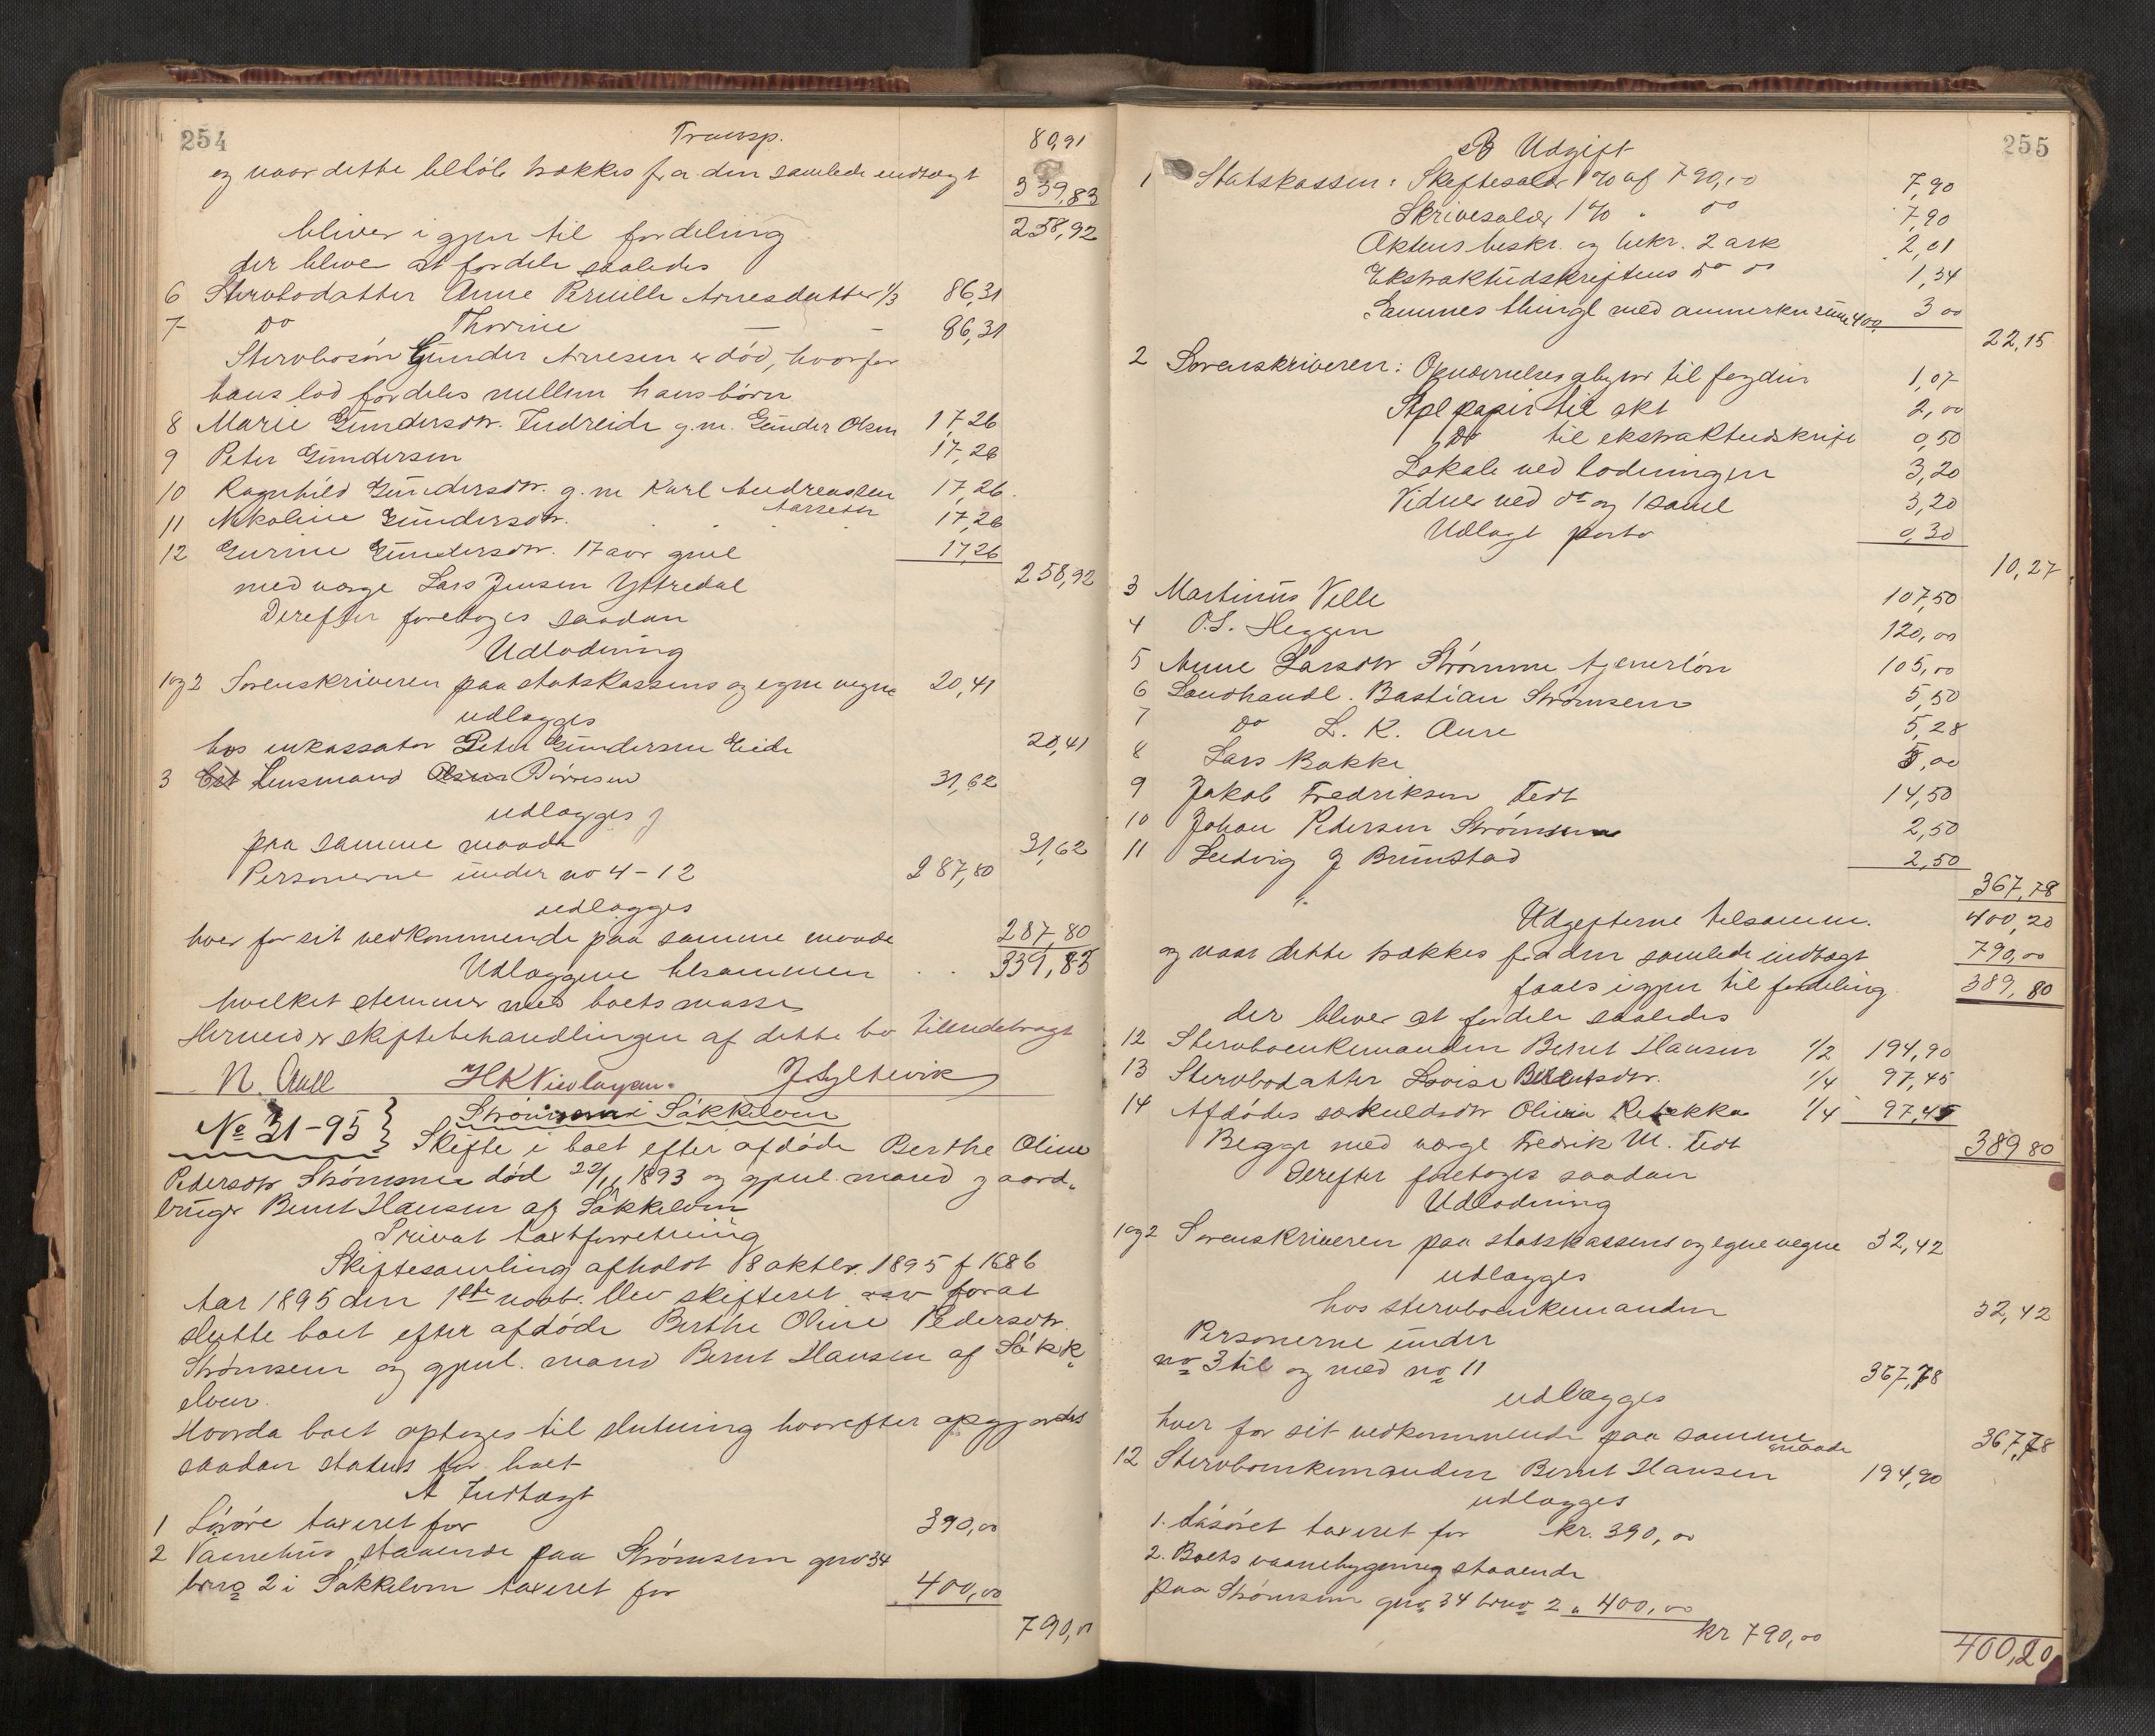 254
Transp. 80,91
og naar dette beløb trækkes fra den samlede indtægt 339,83
bliver igjen til fordeling 258,92
der bliver at fordele saaledes
6 Stervbodatter Anne Pernille Arnesdatter 1/3 86,31
7 Do Thorine — — 86,31
Stervbosøn Gunder Arnesen er død, hvorfor
hans lod fordeles mellem hans børn
8 Marie Gundersdtr. Indreide g.m. Gunder Olsen 17,26
9 Peter Gundersen 17,26
10 Ragnhild Gundersdtr. g.m Karl Andreassen 17,26
Aarseth
11 Nikoline Gundersdtr. 17,26
12 Gurine Gundersdtr. 17 aar gml 17,26
med værge Lars Jensen Yttredal 258,92
Derefter foretoges saadan
Udlodning
1og2 Sorenskriveren paa statskassens og egne vegne 20,41
udlægges
hos inkassator Peter Gundersen Eide 20,41
3 Lensmand Dørresen 31,62
udlægges
paa samme maade 31,62
Personerne under no 4-12 287,80
udlægges
hver for sit vedkommende paa samme maade 287,80
Udlæggene tilsammen 339,83
hvilket stemmer med boets masse
Hermed er skiftebehandlingen af dette bo tilendebragt
N. Aall HKNicolaysen. J. Syltevik
No 31-95} Strømmen i Søkkelven
Skifte i boet efter afdøde Berthe Oline
Pedersdtr Strømmen død 22/11 1893 og gjenl. mand gaard-
bruger Bernt Hansen af Søkkelven
Privat taxtforretning
Skiftesamling afholdt 18 oktbr. 1895 f 168 b
Aar 1895 den 1ste novbr. blev skifteret for at
slutte boet efter afdøde Berthe Oline Pedersdtr.
Strømmen og gjenl. mand Bernt Hansen af Søkk-
elven.
Hvorda boet optoges til slutning hvorefter opgjordes
saadan status for boet
A Indtægt
1 Løsøre taxeret for 390,00
2 Vaanehus staaende paa Strømmen gno 34
bruno 2 i Søkkelven taxeret for 400,00
790,00
255
B Udgift
1 Statskassen: Skiftesalær 1% af 790,00 7,90
Skrivesalær 1% " do 7,90
Aktens beskr. og bekr. 2 ark 2,01
Ekstraktudskriftens do do 1,34
Sammes thingl med anmerkn 400 3 00
22,15
2 Sorenskriveren: Opnævnelsesgebyr til fogden 1,07
Stpl papir til akt 2,00
Do til ekstraktudskrift 0,50
Lokale ved lodningen 3,20
Vidner ved do og 1 saml 3,20
Udlagt porto 0,30
10,27
3 Martinus Velle 107,50
4 O.S. Heggen 120,00
5 Anne Larsdtr Strømme tjenerløn 105,00
6 Landhandl. Bastian Strømsem 5,50
7 Do L. K. Aure 5,28
8 Lars Bakke 5,00
9 Jakob Fredriksen Tedt 14,50
10 Johan Pedersen Strømmen 2,50
11 Ludvig J Brunstad 2,50
367,78
Udgifterne tilsamm. 400,20
og naar dette trækkes fra den samlede indtægt 790,00
faaes igjen til fordeling 389,80
der bliver at fordele saaledes
12 Stervboenkemanden Bernt Hansen 1/2 194,90
13 Stervbodatter Lovise Berntsdtr. 1/4 97,45
14 Afdødes særkuldsdtr Olivia Rebekka 1/4 97,45
Begge med værge Fredrik M. Tedt 389 80
Derefter foretoges saadan
Udlodning
1og2 Sorenskriveren paa statskassens og egne vegne 32,42
udlægges
hos stervboenkemanden 32,42
Personerne under
no 3 til og med no 11 367,78
udlægges
hver for sit vedkommende paa samme
maade 367,78
12 Stervboenkemanden Bernt Hansen 194,90
udlægges
1. Løsøret taxeret for kr. 390,00
2. Boets vaanebygning staaende
paa Strømmen gno 34 bruno 2 " 400,00
kr 790,00
400,20